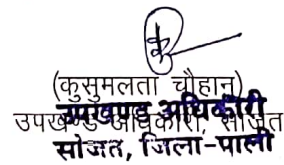 (कुसुमलता चौहान)
उपखण्ड अधिकारी, सोजत
उपखण्ड अधिकारी
सोजत, जिला-पाली